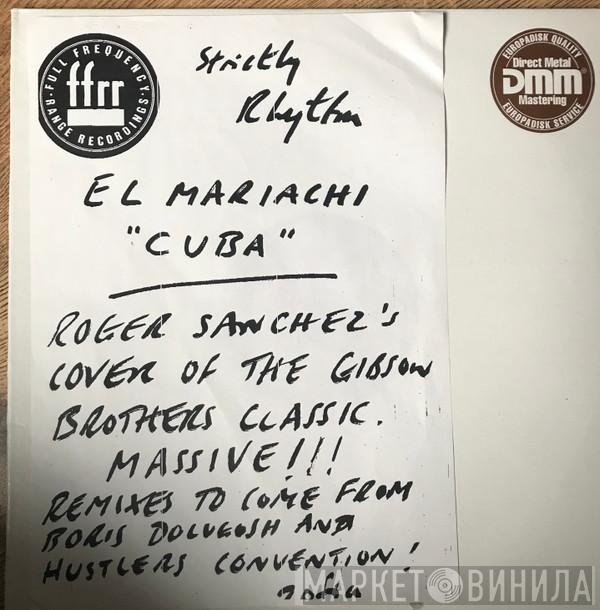 FULL FREQUENCY
ffrr
RANGE RECORDINGS
Strictly
Rhythm
EUROPADISK QUALITY
Direct Metal
DMM
Mastering
EUROPADISK SERVICE
EL MARIACHI
"CUBA"
ROGER SANCHEZ'S
COVER OF THE GIBSON
BROTHERS CLASSIC.
MASSIVE!!!
REMIXES TO COME FROM
BORIS DOLUGOSH AND
HUSTLERS CONVENTION!
МАРКЕТ ВИНИЛА